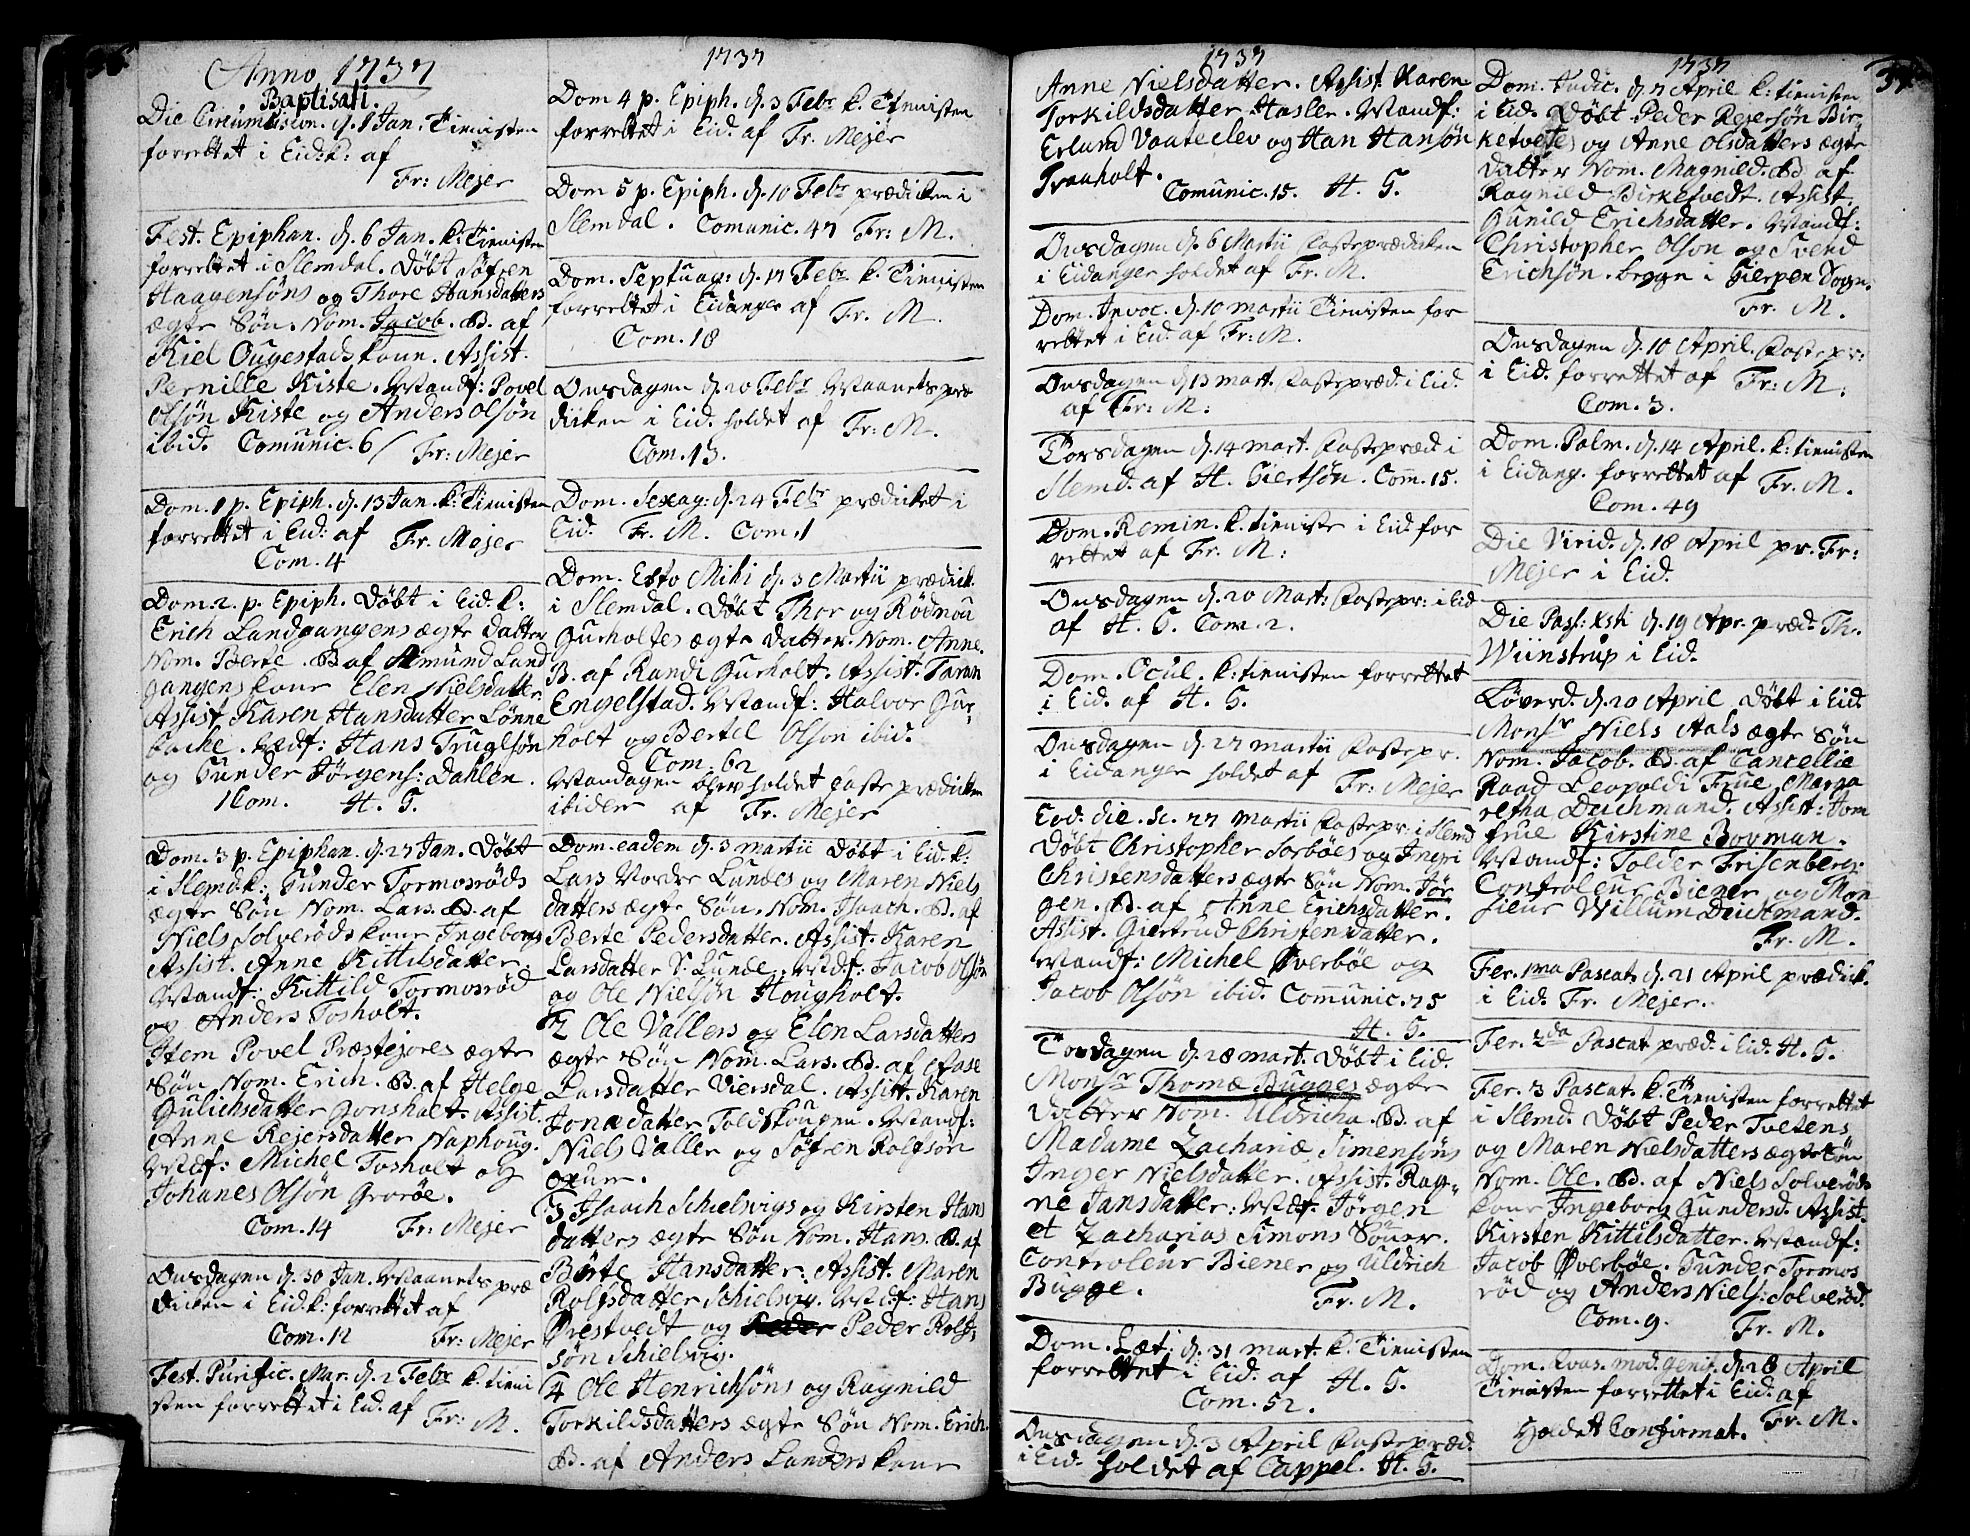 36.
Anno 1737
Baptisati.
Die Circumcision. d. 1 Jan. Tienisten
forrettet i Eid: k: af
Fr: Mejer
Fest. Epiphan. d. 6 Jan. k: Tienisten
forrettet i Slemdal. Døbt Søfren
Haagensøns og Thore Hansdatters
ægte Søn. Nom. Jacob. B. af
Kiel Ougestads kone. Assist.
Pernille Kiste. Vandf: Povel
Olsøn Kiste og Anders Olsøn
ibid. Comunic. 6 / Fr: Mejer
Dom. 1 p. Epiph. d. 13 Jan. k: Tienisten
forrettet i Eid: af Fr. Mejer
Com. 4
Dom. 2. p. Epiph. Døbt i Eid. k:
Erich Landgangens ægte datter
Nom. Berte. B af Amund Land
gangens kone Elen Nielsdatter
Assist. Karen Hansdatter Lønne
backe. Vandf: Hans Truglsøn
og Gunder Jørgens: Dahlen.
1 Com. H. G.
Dom. 3 p. Epiphan. d. 27 Jan. Døbt
i Slemdk: Gunder Tormosrøds
ægte Søn Nom. Lars. B. af
Niels Solverøds kone Ingeborg
Assist. Anne Kittilsdatter.
Vandf: Kittild Tormosrød
og Anders Tosholt.
Item Povel Præstejores ægte
Søn Nom. Erich. B. af Helge
Gulichsdatter Gonsholt. Assist.
Anne Rejersdatter Naphoug.
Vidf: Michel Tosholt og
Johanes Olsøn Grorøe.
Com. 14 Fr: Mejer
Onsdagen d. 30 Jan. Maanets præ
dicken i Eid. k: forrettet af
Com. 12 Fr: Mejer
Fest. Purific. Mar. d. 2 Febr k: tieni
sten forrettet i Eid. af Fr: M.
1737
Dom 4 p. Epiph. d. 3 Febr. k. Tienisten
forrettet i Eid. af Fr. Mejer
Dom 5 p. Epiph. d. 10 Febr prædicken i
Slemdal. Comunic. 47 Fr: M.
Dom. Septuag: d. 17 Febr k. Tienisten
forrettet i Eidanger af Fr. M.
Com. 18
Onsdagen d. 20 Febr Maanets præ
dicken i Eid. holdet af Fr: M.
Com. 13.
Dom. Sexag: d. 24 Febr prædicket i
Eid. Fr. M. Com. 1
Dom. Esto Mihi d. 3 Martii prædick.
i Slemdal. Døbt Thor og Rødnou
Gurholtes ægte datter. Nom. Anne.
B. af Randi Gurholt. Assist. Taran
Engelstad. Vandf: Halvor Gur-
holt og Bertel Olson ibid.
Com. 62
Mandagen blev holdet faste prædicken
ibidem af Fr. Mejer
Dom. eadem d. 3 martii Døbt i Eid. k:
Lars Nordre Lundes og Maren Niels
datters ægte Søn. Nom. Isaach. B. af
Berte Pedersdatter. Assist. Karen
Larsdatter S. Lunde. Vidf: Jacob Olsøn
og Ole Nielsøn Hougholt.
2 Ole Vallers og Elen Larsdatters
ægte Søn Nom. Lars. B. af Aase
Larsdatter Viersdal. Assist. Karen
Jonædatter Toldskougen. Vandf:
Niels Valler og Søfren Rolfsøn
oxum.
3 Isaach Schielwigs og Kirsten Hans
datters ægte Søn Nom. Hans. B. af
Børte Hansdatter. Assist. Maren
Rolfsdatter Schielwig. Vidf: Hans
Ørestvedt og Peder Rolf-
søn Schielwig.
4 Ole Henrichsøns og Ragnild
Torkildsdatters ægte Søn Nom. Erich.
B. af Anders Lunders kone
1737
Anne Nielsdatter. Assist. Karen
Torkildsdatter Hasler. Vandf:
Erlund Vaateclev og Han Hansøn
Tranholt.
Comunic. 15. H. G.
Onsdagen d. 6 Martii Fasteprædicken
i Eidanger holdet af Fr. M.
Dom. Invoc. d. 10 martii Tienisten for
rettet i Eid. af Fr: M.
Onsdagen d. 13 mart. Fastepræd. i Eid.
af Fr: M:
Torsdagen d. 14 mart. Fastepræd. i
Slemd. af H. Giertsøn. Com. 15.
Dom. Remin. k. tieniste i Eid. for
rettet af Fr. M:
Onsdagen d. 20 Mart: Fastepr: i Eid
af H. G. Com. 2.
Dom. Ocul. k: tienisten forrettet
i Eid. af H. G.
Onsdagen d. 27 martii Fastepr.
i Eidanger holdet af Fr: Mejer
Eod. die. sc. 27 martii Fastepr: i Slemd
Døbt Christopher Sorbøes og Ingri
Christensdatters ægte Søn Nom. Jør
gen. B. af Anne Erichsdatter.
Assist. Giertrud Christensdatter.
Vandf: Michel Øverbøe og
Jacob Olsøn ibid. Comunic. 75
H. G.
Torsdagen d. 28 mart. Døbt i Eid.
Monsr Thomæ Bugges ægte
datter Nom. Uldricha. B. af
Madame Zachariæ Simensøns
Inger Nielsdatter. Assist. Rag-
ne Jansdatter. Vidf: Jørgen
et Zacharias Simons Søner.
Controleur Biener og Uldrich
Bugge. Fr. M.
Dom. Læt: d. 31 mart. k. Tienisten
forrettet i Eid. af H. G.
Com. 52.
Onsdagen d. 3 April Fastepræd.
i Eid. holdet af Cappel. H. G.
1737
37.
Dom. Judic. d. 7 April k: tienisten
i Eid. Døbt Peder Rejersøn Bir-
ketvetes og Anne Olsdatters ægte
datter Nom. Magnild. B af
Ragnild Birketvedt. Assist.
Gunild Erichsdatter. Vandf:
Christopher Olson og Svend
Erichsøn. begge i Gierpen Sogn.
Fr. M.
Onsdagen d. 10 April. Fastepr:
i Eid. forrettet af Fr: M.
Com. 3.
Dom. Palm. d. 14 April. k: tienisten
i Eidang. forrettet af Fr. M.
Com. 49
Die Virid. d. 18 April pr. Fr:
Mejer i Eid.
Die Pass: Xsti d. 19 Apr. præd. Th.
Wiinstrup i Eid.
Løverd. d. 20 April Døbt i Eid.
Monsr Niels Aals ægte Søn
Nom. Jacob. B. af Cancellie
Raad Leopoldi Frue Marga
retha Deichmand. Assist: Jom
frue Kirstine Bovman.
Vandf: Tolder Frisenberg.
Controleur Biener og Mon
sieur Willum Deichmand.
Fr. M.
Fer. 1ma Pascat. d. 21 April prædick.
i Eid. Fr. Mejer.
Fer. 2da Pascat præd. i Eid. H. G.
Fer. 3 Pascat. k. Tienisten forrettet
i Slemd. Døbt Peder Tvetens
og Maren Nielsdatters ægte Søn
Nom. Ole. B. af Niels Solverøds
kone Ingeborg Gundersd. Assist.
Kirsten Kittilsdatter. Vandf:
Jacob Øverbøe. Gunder Tormos
rød og Anders Niels: Solverød.
Com. 9. Fr. M.
Dom. Qvas. mod. genit. d. 28 April
Tienisten forrettet i Eid. af
Holdet Confirmat. Fr. M.